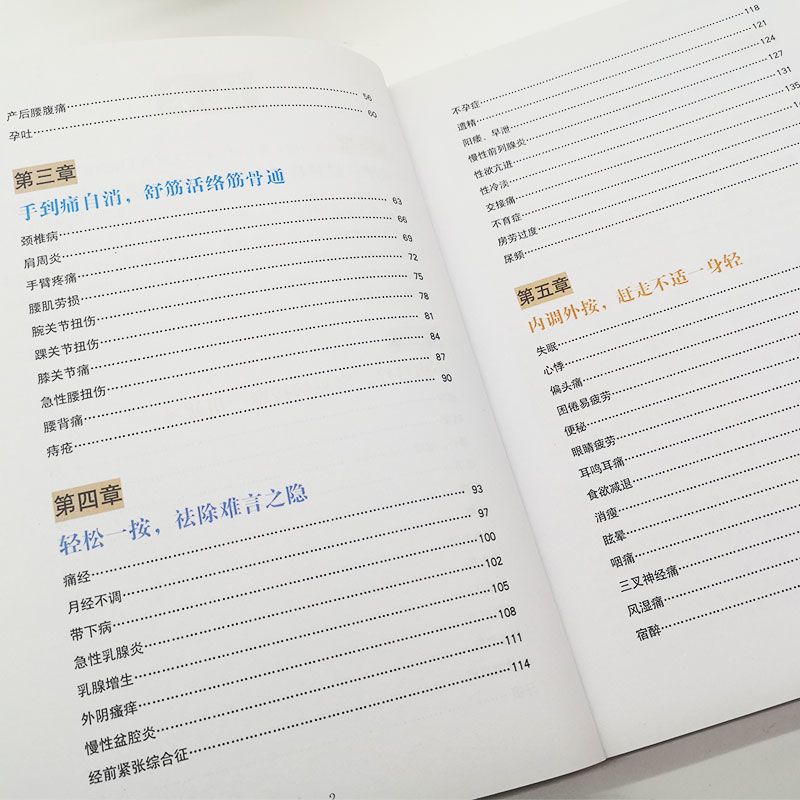 产后腰腹痛 56
孕吐 60
第三章
手到痛自消，舒筋活络筋骨通
颈椎病 63
肩周炎 66
手臂疼痛 69
腰肌劳损 72
腕关节扭伤 75
踝关节扭伤 78
膝关节痛 81
急性腰扭伤 84
腰背痛 87
痔疮 90
第四章
轻松一按，祛除难言之隐
痛经 93
月经不调 97
带下病 100
急性乳腺炎 102
乳腺增生 105
外阴瘙痒 108
慢性盆腔炎 111
经前紧张综合征 114
2
不孕症 118
遗精 121
阳痿、早泄 124
慢性前列腺炎 127
性欲亢进 131
性冷淡 135
交接痛
不育症
房劳过度
尿频
第五章
内调外按，赶走不适一身轻
失眠
心悸
偏头痛
困倦易疲劳
便秘
眼睛疲劳
耳鸣耳痛
食欲减退
消瘦
眩晕
咽痛
三叉神经痛
风湿痛
宿醉